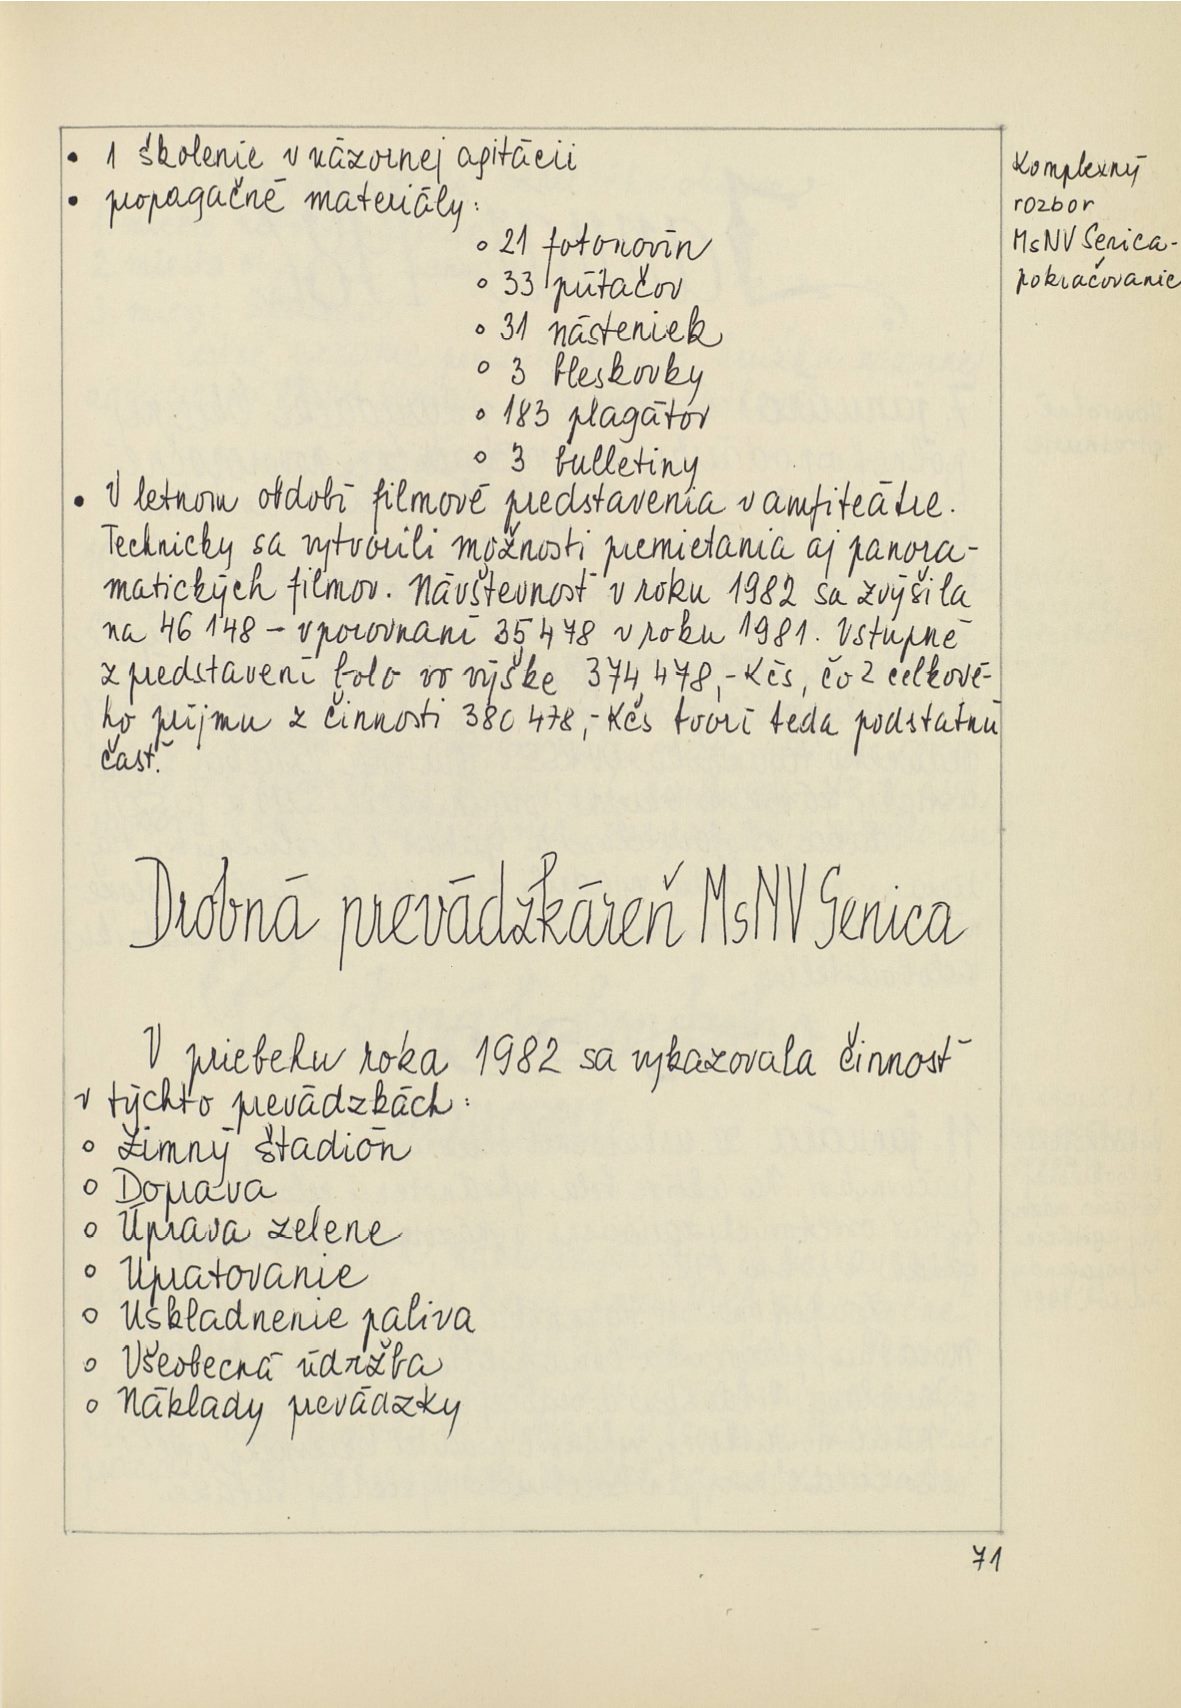 • 1 školenie v názornej agitácii
• propagačné materiály:
◦ 21 fotonovín
◦ 33 pútačov
◦ 31 násteniek
◦ 3 bleskovky
◦ 183 plagátov
◦ 3 bulletiny
• V letnom období filmové predstavenia v amfiteátre.
Technicky sa vytvorili možnosti premietania aj panora-
matických filmov. Návštevnosť v roku 1982 sa zvýšila
na 46 148 – v porovnaní 35 478 v roku 1981. Vstupné
z predstavení bolo vo výške 374 478,- Kčs, čo z celkové-
ho príjmu z činnosti 380 478,- Kčs tvorí teda podstatnú
časť.
Komplexný
rozbor
MsNV Senica-
pokračovanie
Drobná prevádzkáreň MsNV Senica
V priebehu roka 1982 sa vykazovala činnosť
v týchto prevádzkách:
◦ Zimný štadión
◦ Doprava
◦ Úprava zelene
◦ Upratovanie
◦ Uskladnenie paliva
◦ Všeobecná údržba
◦ Náklady prevádzky
71